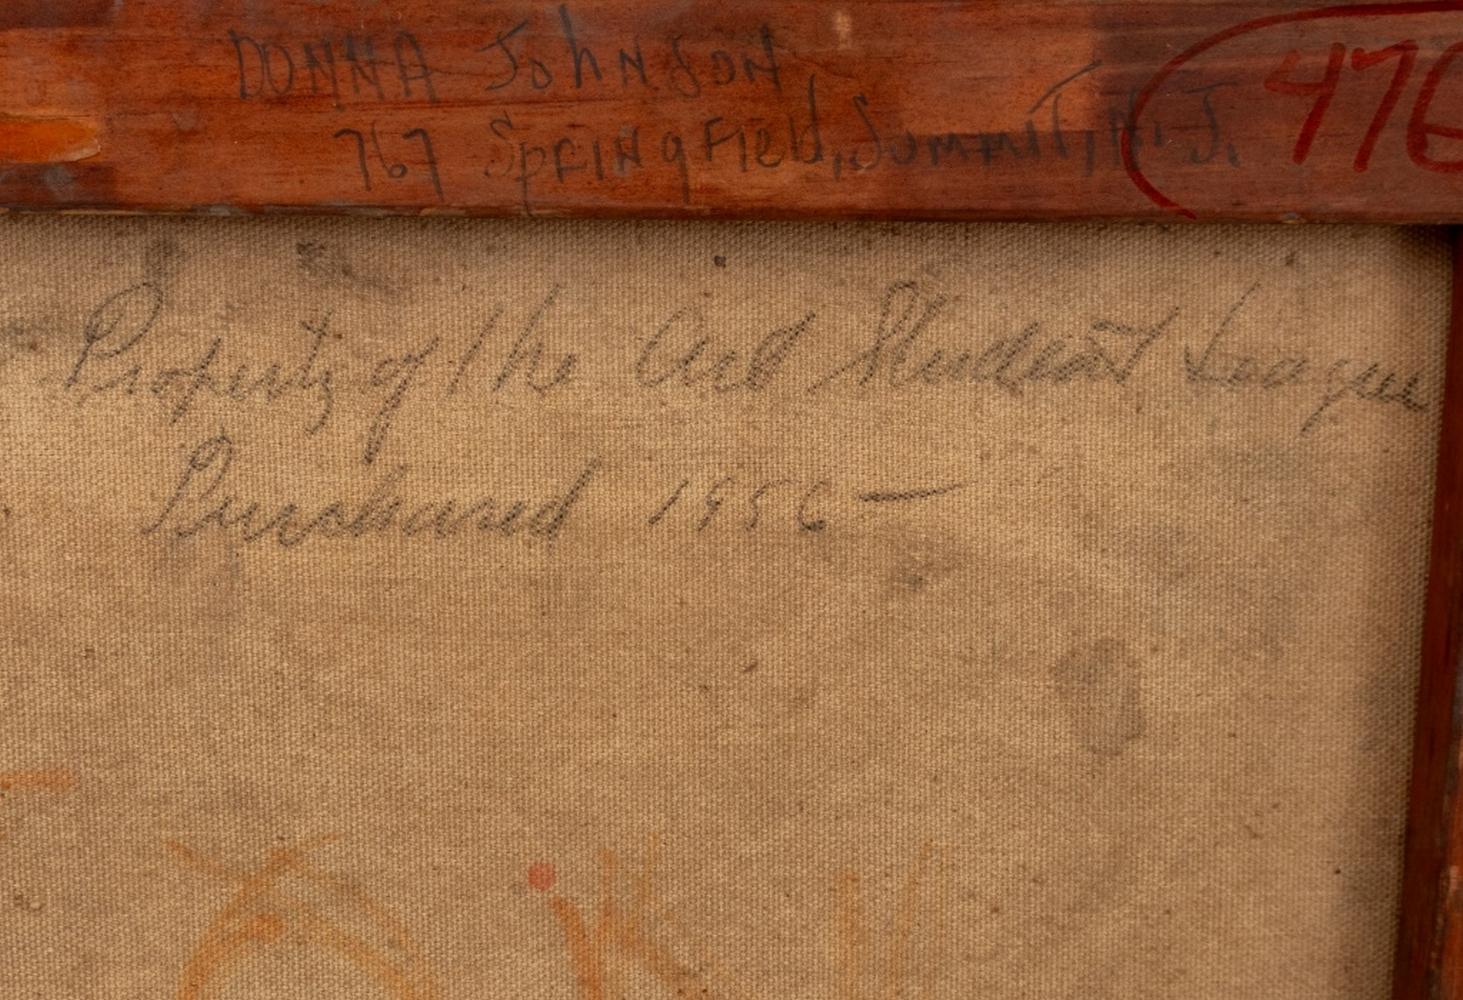 DONNA JohNSON
767 SpRINgField, SummiT, N.J.
476
Property of the Art Student League
Purchased 1956 —